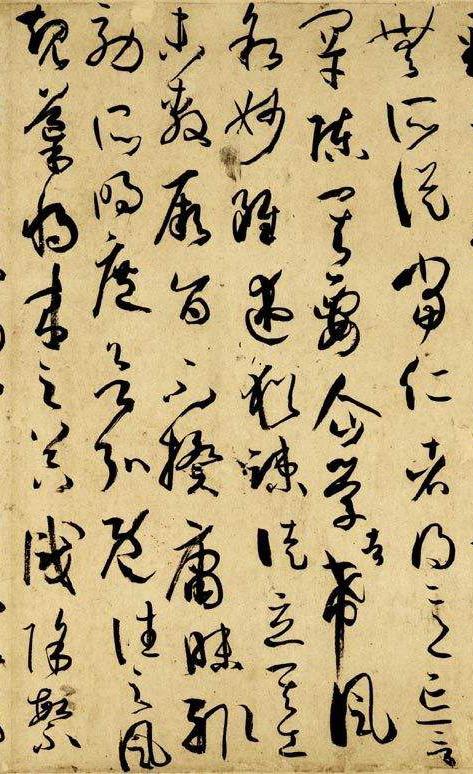 無所從當仁者得意忘言
罕陳其要企學者希風
敘妙雖述猶疎徒立其工
未敷厥旨不揆庸昧輒
效所明庶欲弘既往之風
規導將來之器識除繁